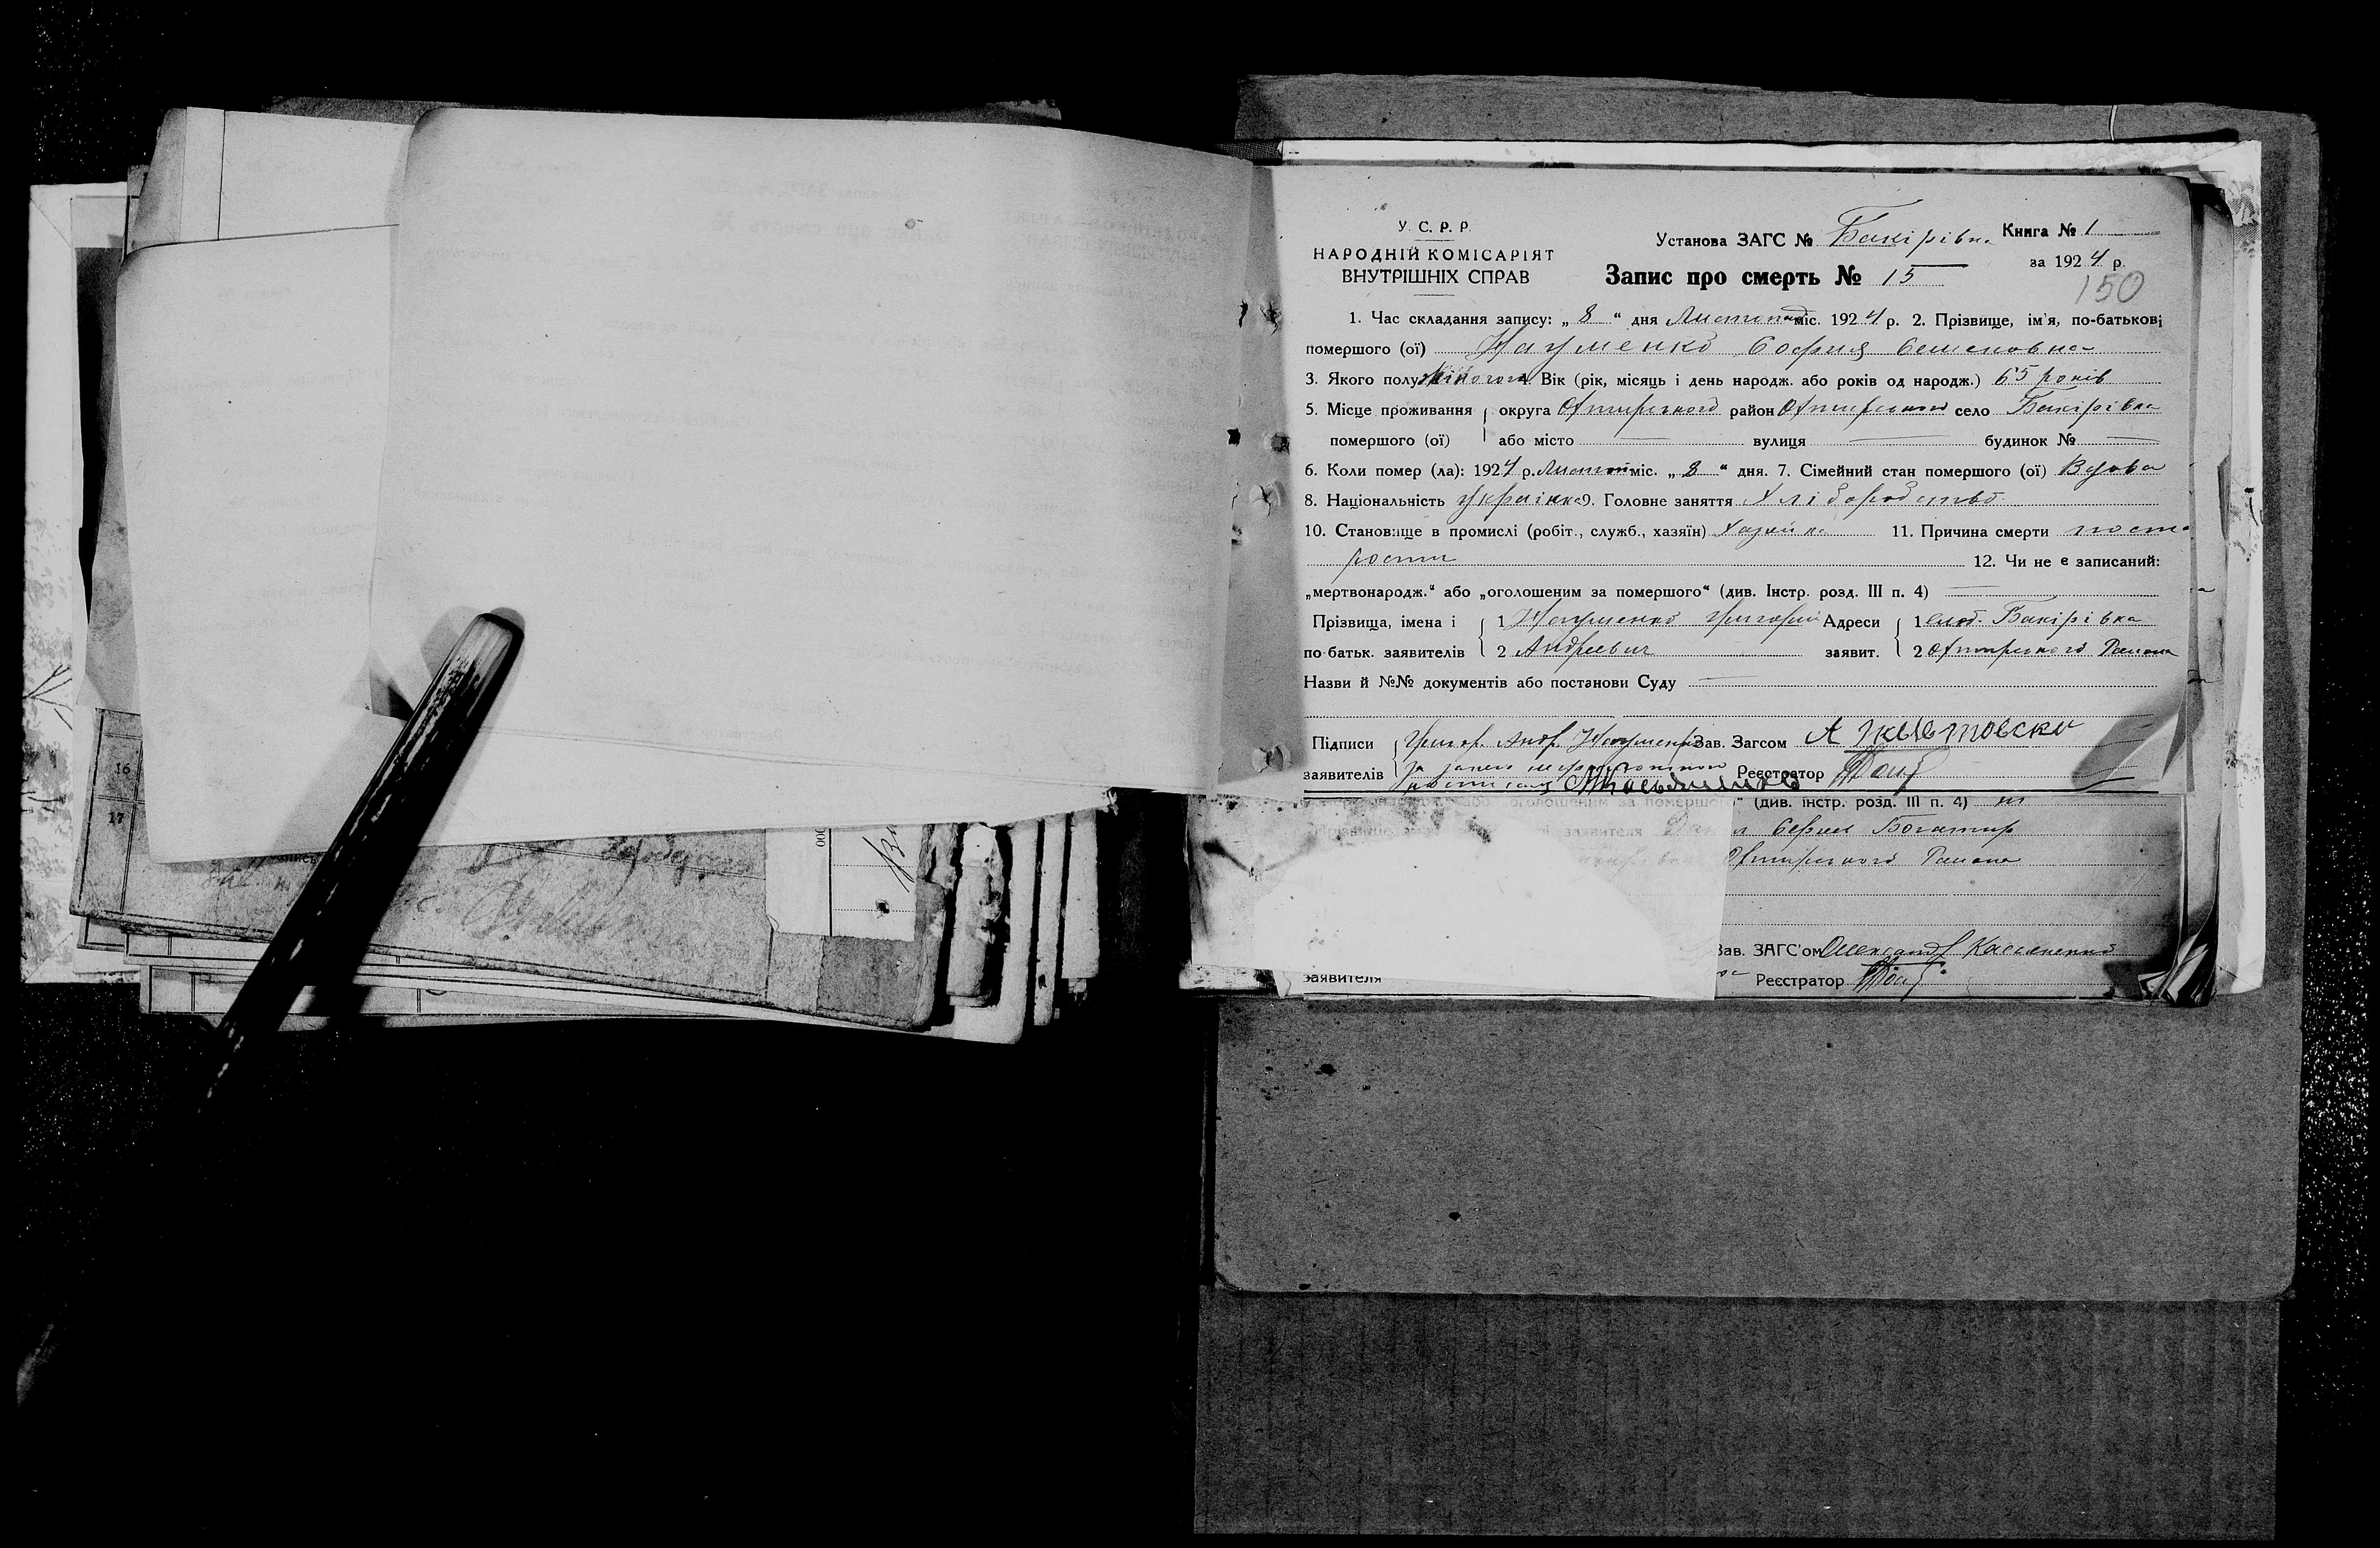 У. С. Р. Р.
НАРОДНІЙ КОМІСАРІЯТ
ВНУТРІШНІХ СПРАВ
Установа ЗАГС № Бакірівка Книга № 1
за 1924 р.
Запис про смерть № 15
150
1. Час складання запису: „ 8 “ дня Листопад міс. 1924 р. 2. Прізвище, ім'я, по-батькові
помершого (ої) Науменко София Семеновна
3. Якого полу жіночого 4. Вік (рік, місяць і день народж. або років од народж.) 65 років
5. Місце проживання округа Охтирського район Охтирського село Бакірівка
помершого (ої) або місто — вулиця — будинок № —
6. Коли помер (ла): 1924 р. Листоп міс. „ 8 “ дня. 7. Сімейний стан помершого (ої) Вдова
8. Національність Українка 9. Головне заняття Хліборобство
10. Становище в промислі (робіт., служб., хазяїн) Хазяйка 11. Причина смерти по ста
рости 12. Чи не є записаний:
„мертвонародж.“ або „оголошеним за помершого“ (див. Інстр. розд. III п. 4) —
Прізвища, імена і 1 Науменко Григорий Адреси 1 слоб. Бакірівка
по-батьк. заявителів 2 Андреевич заявит. 2 Охтирского Района
Назви й №№ документів або постанови Суду —
Підписи Григор. Андр. Науменко Зав. Загсом
заявителів Реєстратор
оголошеним за помершого“ (див. інстр. розд. III п. 4)
заявителя Богатир
Охтирского Района
Зав. ЗАГС'ом Олександ Касьяненко
заявителя Реєстратор
16
17